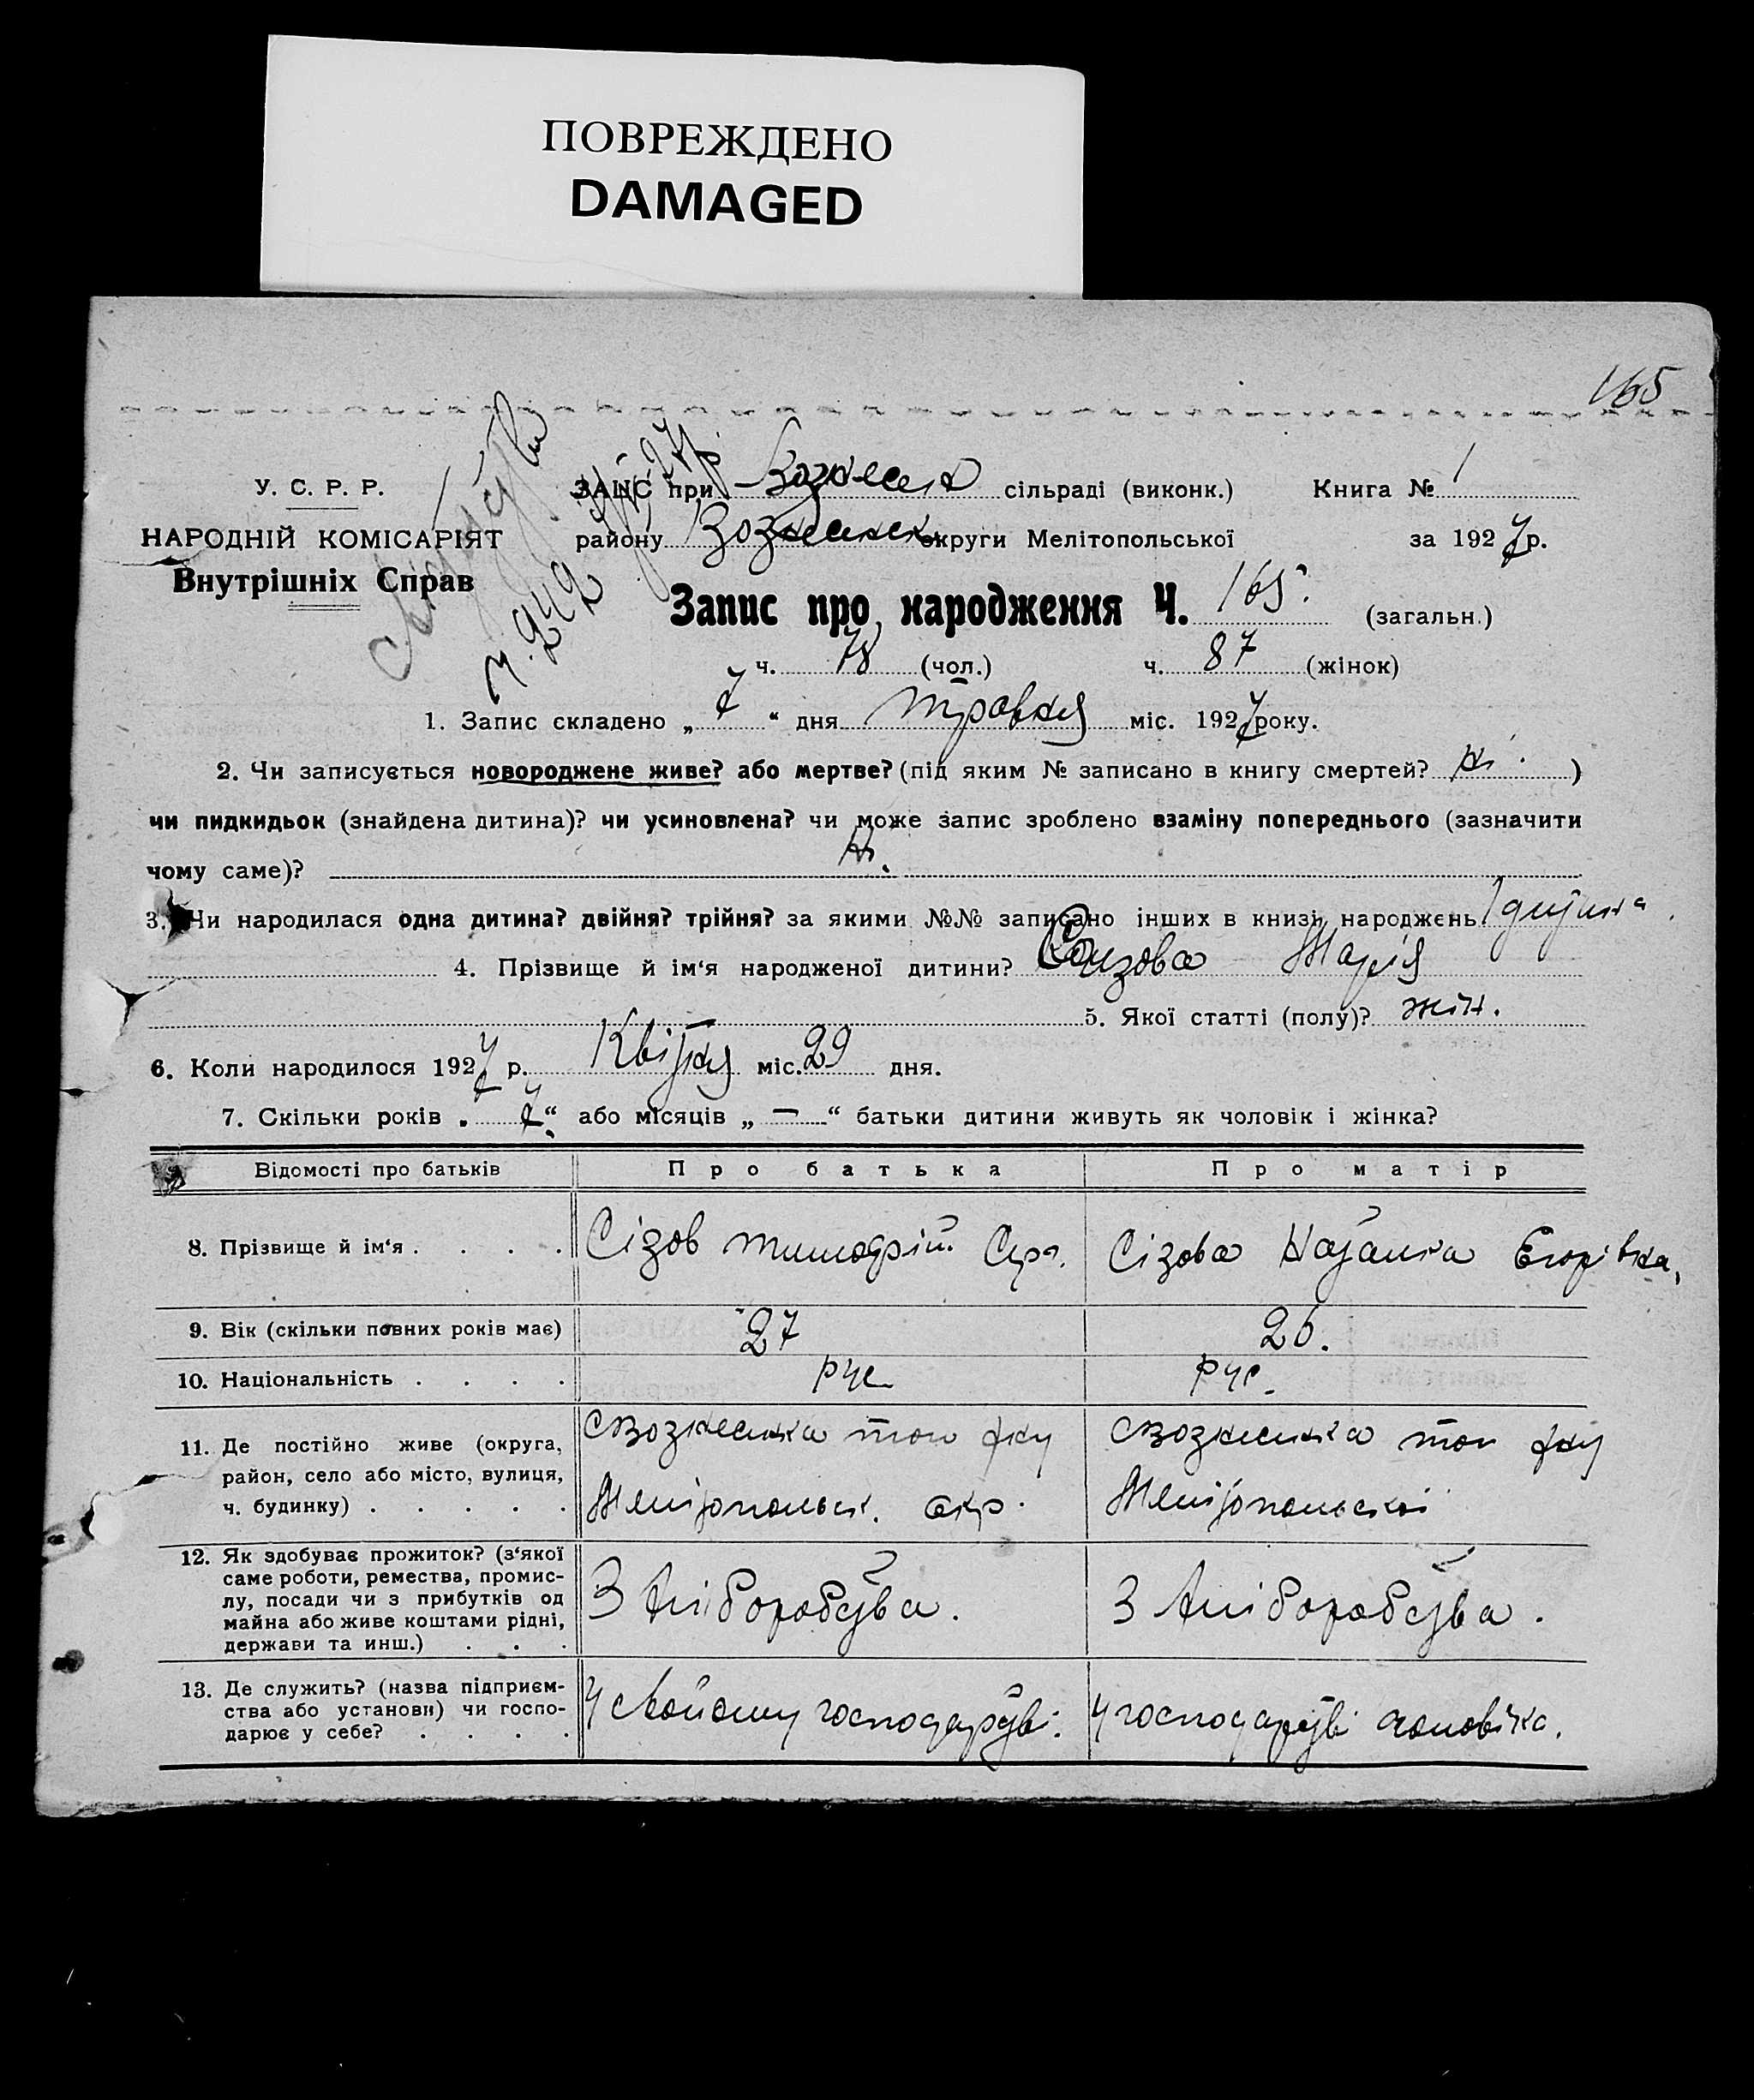 ПОВРЕЖДЕНО
DAMAGED
165
У. С. Р. Р.
НАРОДНІЙ КОМІСАРІЯТ
Внутрішніх Справ
ЗАЦС при Вознесен сільраді (виконк.) Книга № 1
району Вознесенск округи Мелітопольської за 1927 р.
Запис про народження Ч. 165. (загальн.)
ч. 78 (чол.) ч. 87 (жінок)
1. Запис складено „ 7 “ дня травня міс. 1927 року.
2. Чи записується новороджене живе? або мертве? (під яким № записано в книгу смертей? ні. )
чи пидкидьок (знайдена дитина)? чи усиновлена? чи може запис зроблено взаміну попереднього (зазначити
чому саме)? ні.
3. Чи народилася одна дитина? двійня? трійня? за якими №№ записано інших в книзі народжень 1 дитина
4. Прізвище й ім‘я народженої дитини? Сизова Марія
5. Якої статті (полу)? жін.
6. Коли народилося 1927 р. Квітня міс. 29 дня.
7. Скільки років „ 7 “ або місяців „ — “ батьки дитини живуть як чоловік і жінка?
Відомості про батьків Про батька Про матір
8. Прізвище й ім‘я . . . . Сізов Тимофій Сер. Сізова Наталка Егорівна,
9. Вік (скільки повних років має) 27 26.
10. Національність . . . . рус рус.
11. Де постійно живе (округа,
район, село або місто, вулиця,
ч. будинку) . . . . .
с Вознесенка того ж р-ну
Мелітопольск. окр.
с Вознесенка того ж р-ну
Мелітопольскої
12. Як здобуває прожиток? (з‘якої
саме роботи, ремества, промис-
лу, посади чи з прибутків од
майна або живе коштами рідні,
держави та инш.) . . .
З хліборобства.
З хліборобства.
13. Де служить? (назва підприєм-
ства або установи) чи госпо-
дарює у себе? . . . .
У свойому господарстві.
У господарстві чоловіка.